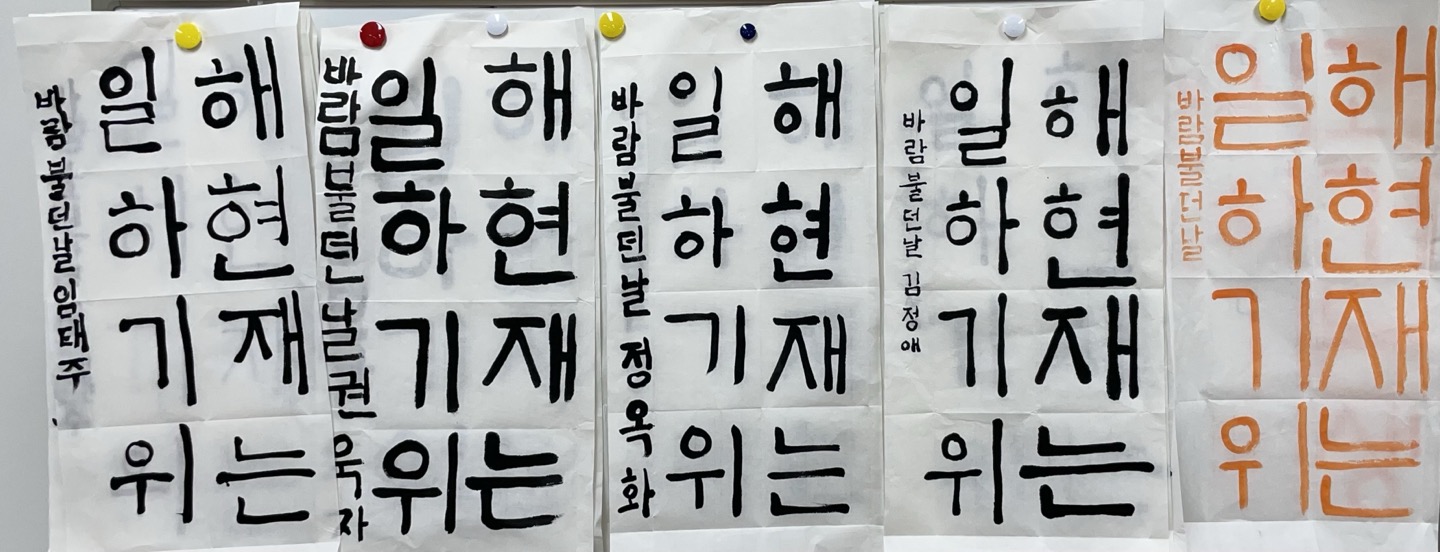 바람불던날임태주
일하기위
해현재는
바람불던날권욱자
일하기위
해현재는
바람불던날 정옥화
일하기위
해현재는
바람불던날 김정애
일하기위
해현재는
바람불던날
일하기위
해현재는